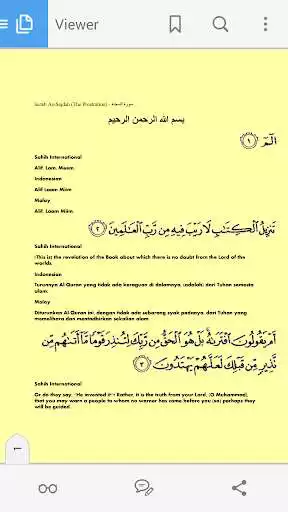 Viewer
Surah As-Sajdah (The Prostration) - سورة السجدة
بسم الله الرحمن الرحيم
الٓمٓ ١
Sahih International
Alif, Lam, Meem.
Indonesian
Alif Laam Miim
Malay
Alif, Laam Miim.
تَنزِيلُ ٱلْكِتَٰبِ لَا رَيْبَ فِيهِ مِن رَّبِّ ٱلْعَٰلَمِينَ ٢
Sahih International
[This is] the revelation of the Book about which there is no doubt from the Lord of the
worlds.
Indonesian
Turunnya Al-Quran yang tidak ada keraguan di dalamnya, (adalah) dari Tuhan semesta
alam.
Malay
Diturunkan Al-Quran ini, dengan tidak ada sebarang syak padanya, dari Tuhan yang
memelihara dan mentadbirkan sekalian alam.
أَمْ يَقُولُونَ ٱفْتَرَىٰهُ بَلْ هُوَ ٱلْحَقُّ مِن رَّبِّكَ لِتُنذِرَ قَوْمًا مَّآ أَتَىٰهُم مِّن
نَّذِيرٍ مِّن قَبْلِكَ لَعَلَّهُمْ يَهْتَدُونَ ٣
Sahih International
Or do they say, "He invented it"? Rather, it is the truth from your Lord, [O Muhammad],
that you may warn a people to whom no warner has come before you [so] perhaps they
will be guided.
1